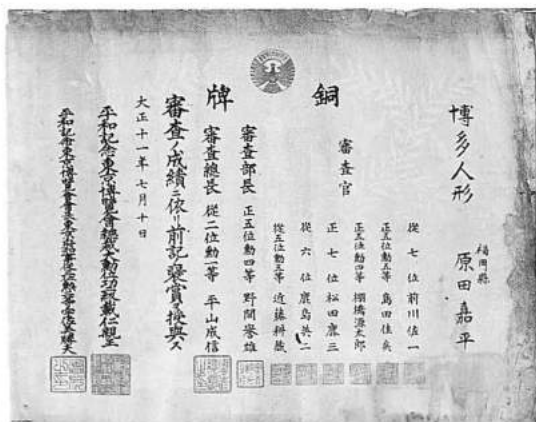 銅牌
博多人形
福岡縣
原田嘉平
審査官
從七位 前川佐一
正五位勳五等 島田佳矣
正五位勳四等 棚橋源太郎
正七位 松田鹿三
從六位 鹿島英二
從五位勳五等 近藤
審査部長 正五位勳四等 野間譽雄
審査總長 從二位勳一等 平山成信
審査ノ成績ニ依リ前記ノ襃賞ヲ授與ス
大正十一年七月十日
平和記念東京博覽會總裁大勳位功
平和記念東京博覽會會長東京府知事